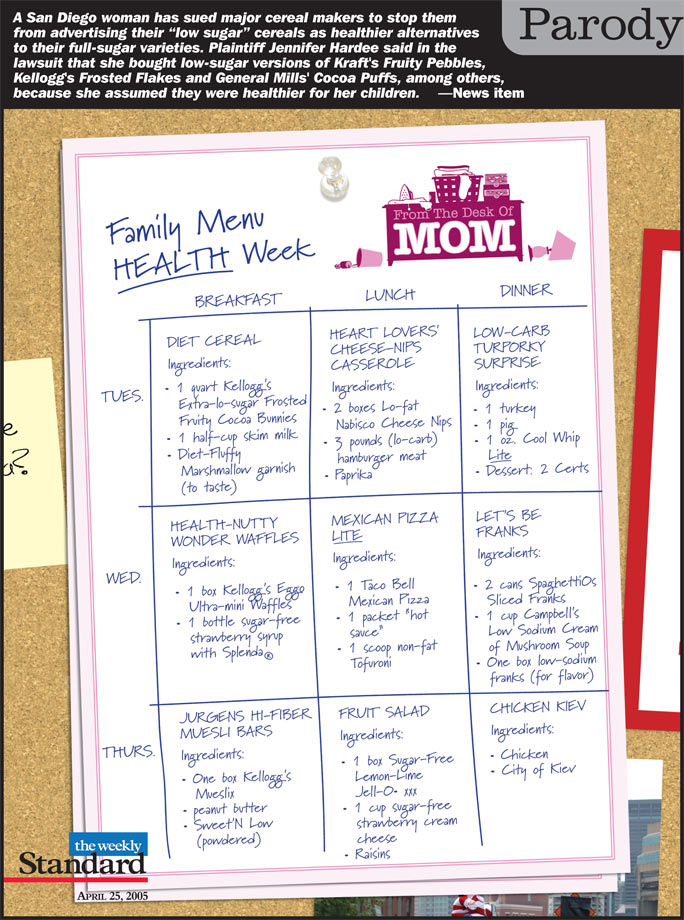 A San Diego woman has sued major cereal makers to stop them
from advertising their “low sugar” cereals as healthier alternatives
to their full-sugar varieties. Plaintiff Jennifer Hardee said in the
lawsuit that she bought low-sugar versions of Kraft's Fruity Pebbles,
Kellogg's Frosted Flakes and General Mills' Cocoa Puffs, among others,
because she assumed they were healthier for her children. —News item
Parody
From The Desk Of
MOM
Family Menu
HEALTH Week
BREAKFAST
LUNCH
DINNER
TUES.
DIET CEREAL
Ingredients:
- 1 quart Kellogg's
Extra-lo-sugar Frosted
Fruity Cocoa Bunnies
- 1 half-cup skim milk
- Diet-Fluffy
Marshmallow garnish
(to taste)
HEART LOVERS'
CHEESE-NIPS
CASSEROLE
Ingredients:
- 2 boxes Lo-fat
Nabisco Cheese Nips
- 3 pounds (lo-carb)
hamburger meat
- Paprika
LOW-CARB
TURPORKY
SURPRISE
Ingredients:
- 1 turkey
- 1 pig
- 1 oz. Cool Whip
Lite
- Dessert: 2 Certs
WED.
HEALTH-NUTTY
WONDER WAFFLES
Ingredients:
- 1 box Kellogg's Eggo
Ultra-mini Waffles
- 1 bottle sugar-free
strawberry syrup
with Splenda®
MEXICAN PIZZA
LITE
Ingredients:
- 1 Taco Bell
Mexican Pizza
- 1 packet "hot
sauce"
- 1 scoop non-fat
Tofuroni
LET'S BE
FRANKS
Ingredients:
- 2 cans SpaghettiOs
Sliced Franks
- 1 cup Campbell's
Low Sodium Cream
of Mushroom Soup
- One box low-sodium
franks (for flavor)
THURS.
JURGENS HI-FIBER
MUESLI BARS
Ingredients:
- One box Kellogg's
Mueslix
- peanut butter
- Sweet'N Low
(powdered)
FRUIT SALAD
Ingredients:
- 1 box Sugar-Free
Lemon-Lime
Jell-O• xxx
- 1 cup sugar-free
strawberry cream
cheese
- Raisins
CHICKEN KIEV
Ingredients:
- Chicken
- City of Kiev
the weekly
Standard
APRIL 25, 2005